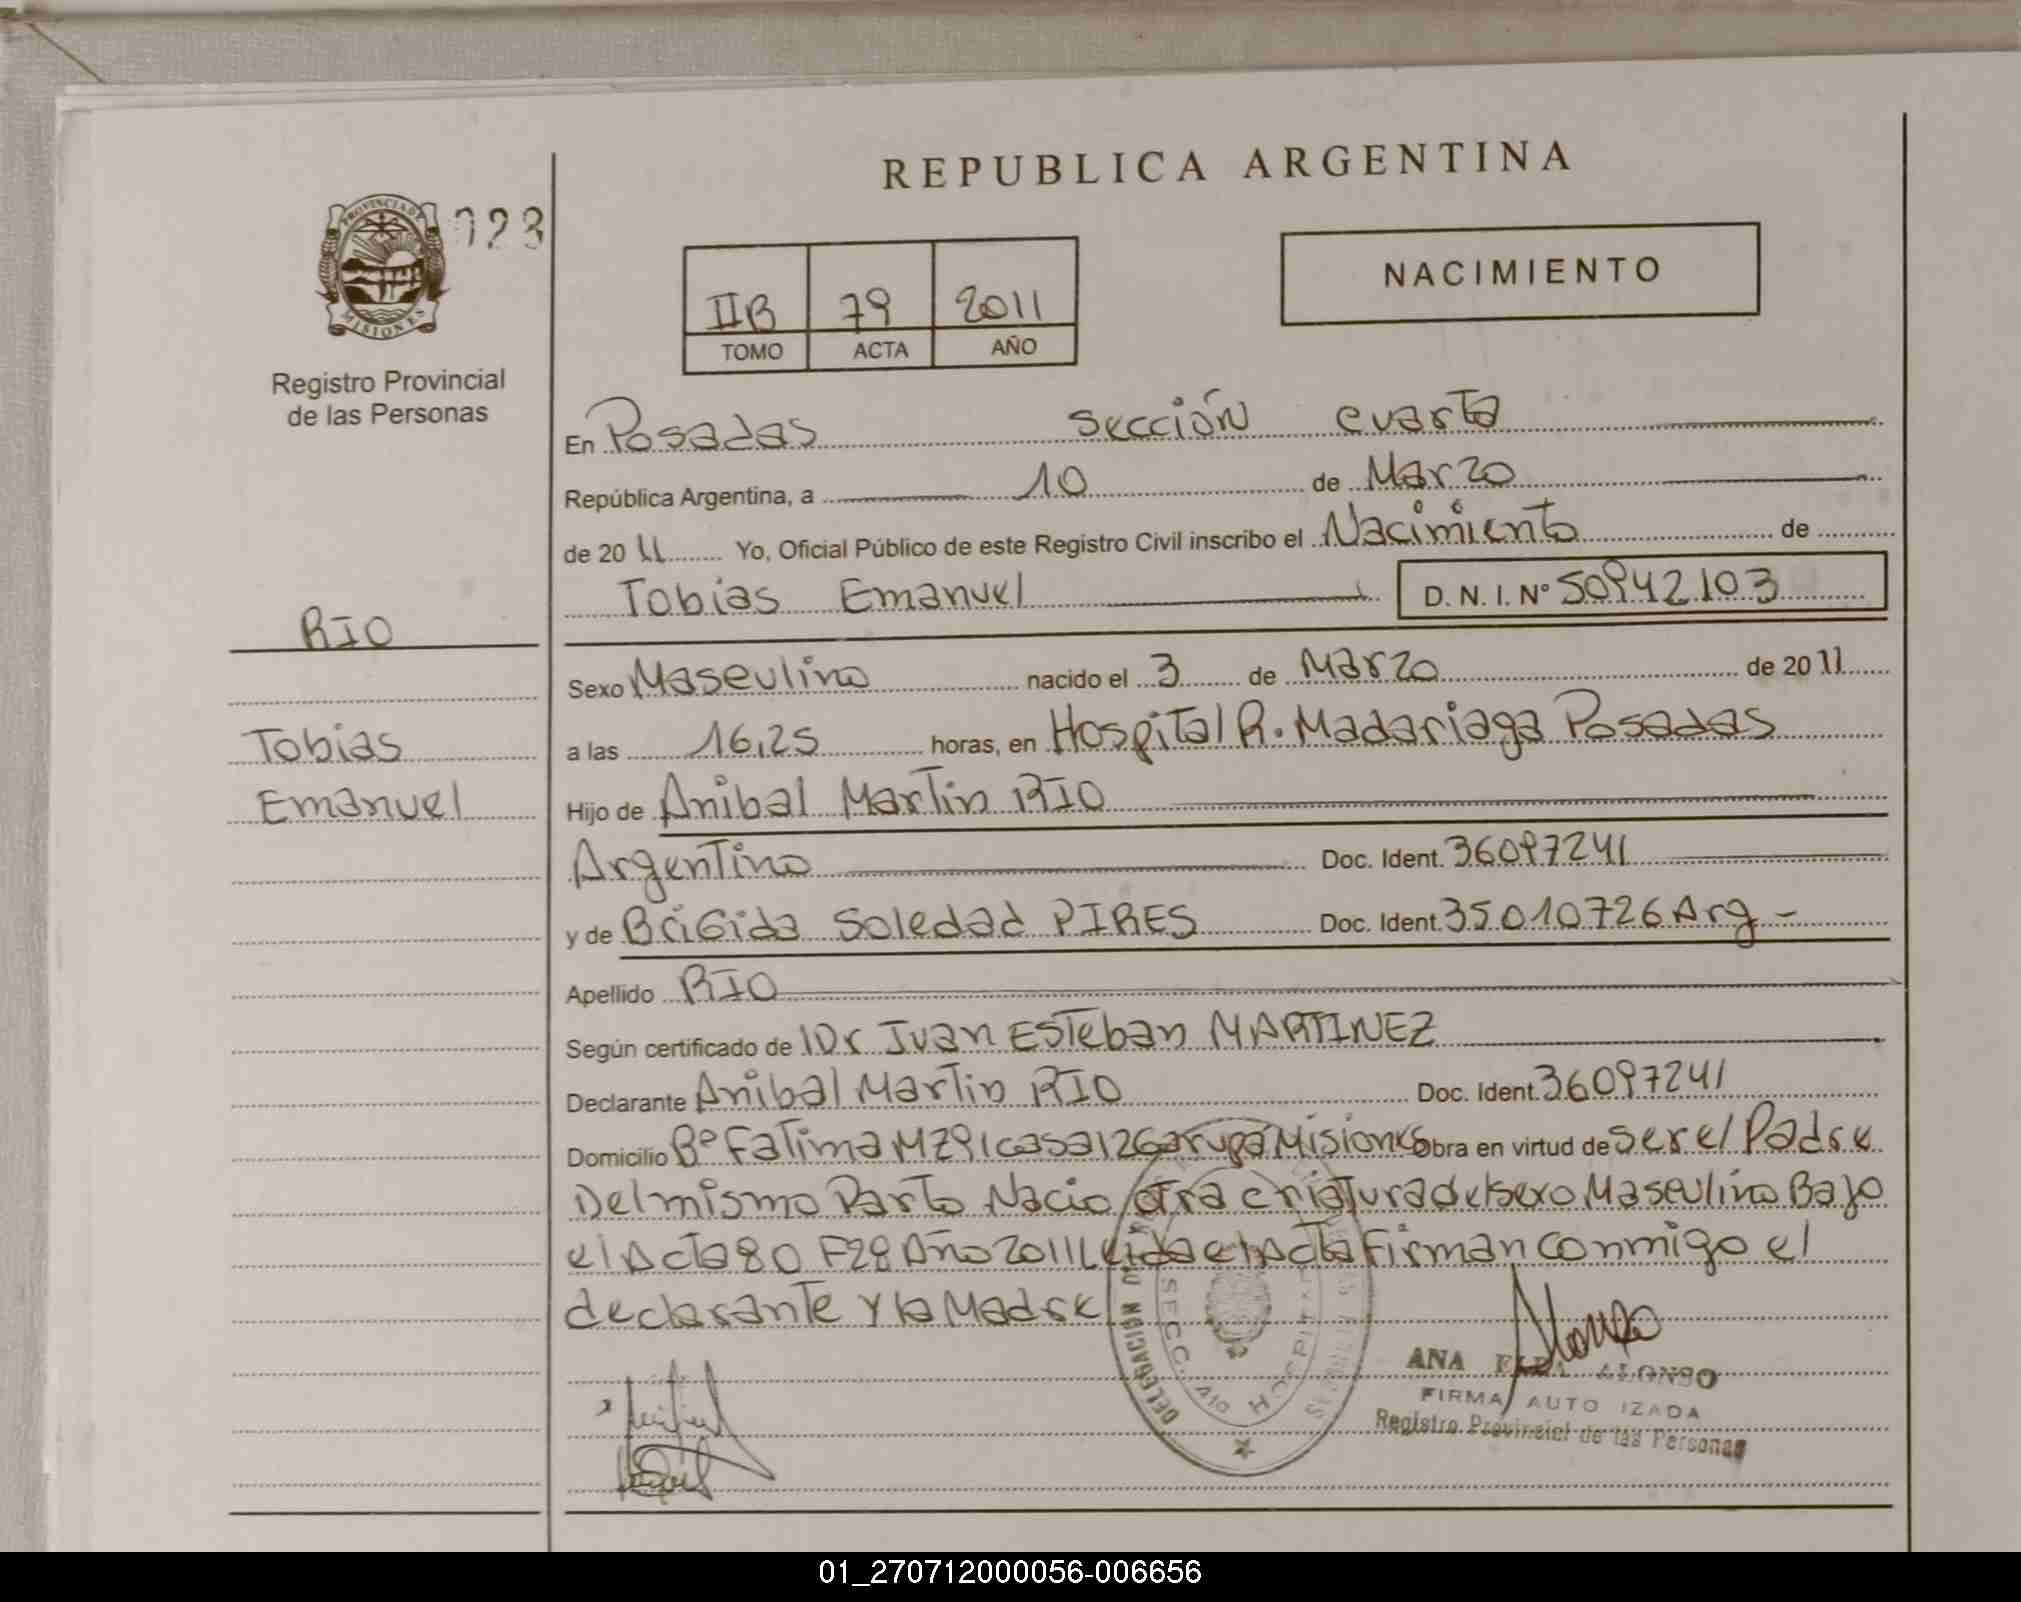 REPUBLICA ARGENTINA
PROVINCIA DE
MISIONES
Registro Provincial
de las Personas
IIB 79 2011
TOMO ACTA AÑO
NACIMIENTO
En Posadas sección cuarta
República Argentina, a 10 de Marzo
de 2011 Yo, Oficial Público de este Registro Civil inscribo el Nacimiento de
Tobias Emanuel D. N. I. Nº 50942103
RIO
Tobias
Emanuel
Sexo Masculino nacido el 3 de Marzo de 2011
a las 16,25 horas, en Hospital R. Madariaga Posadas
Hijo de Anibal Martin RIO
Argentino Doc. Ident. 36097241
y de BriGida Soledad PIRES Doc. Ident. 35010726 Arg -
Apellido RIO
Según certificado de Dr Juan Esteban MARTINEZ
Declarante Anibal Martin RIO Doc. Ident. 36097241
Domicilio Bº Fatima MZ91casa12Garupa Misiones Obra en virtud de ser el Padre
Del mismo Parto Nacio otra criatura del sexo Masculino Bajo
el Acta 80 F28 Año 2011 Leida el Acta Firman conmigo el
declarante y la Madre
DELEGACION
SECC. 4to HOSPITAL
ANA ALONSO
FIRMA AUTO IZADA
Registro Provincial de las Personas
01_270712000056-006656